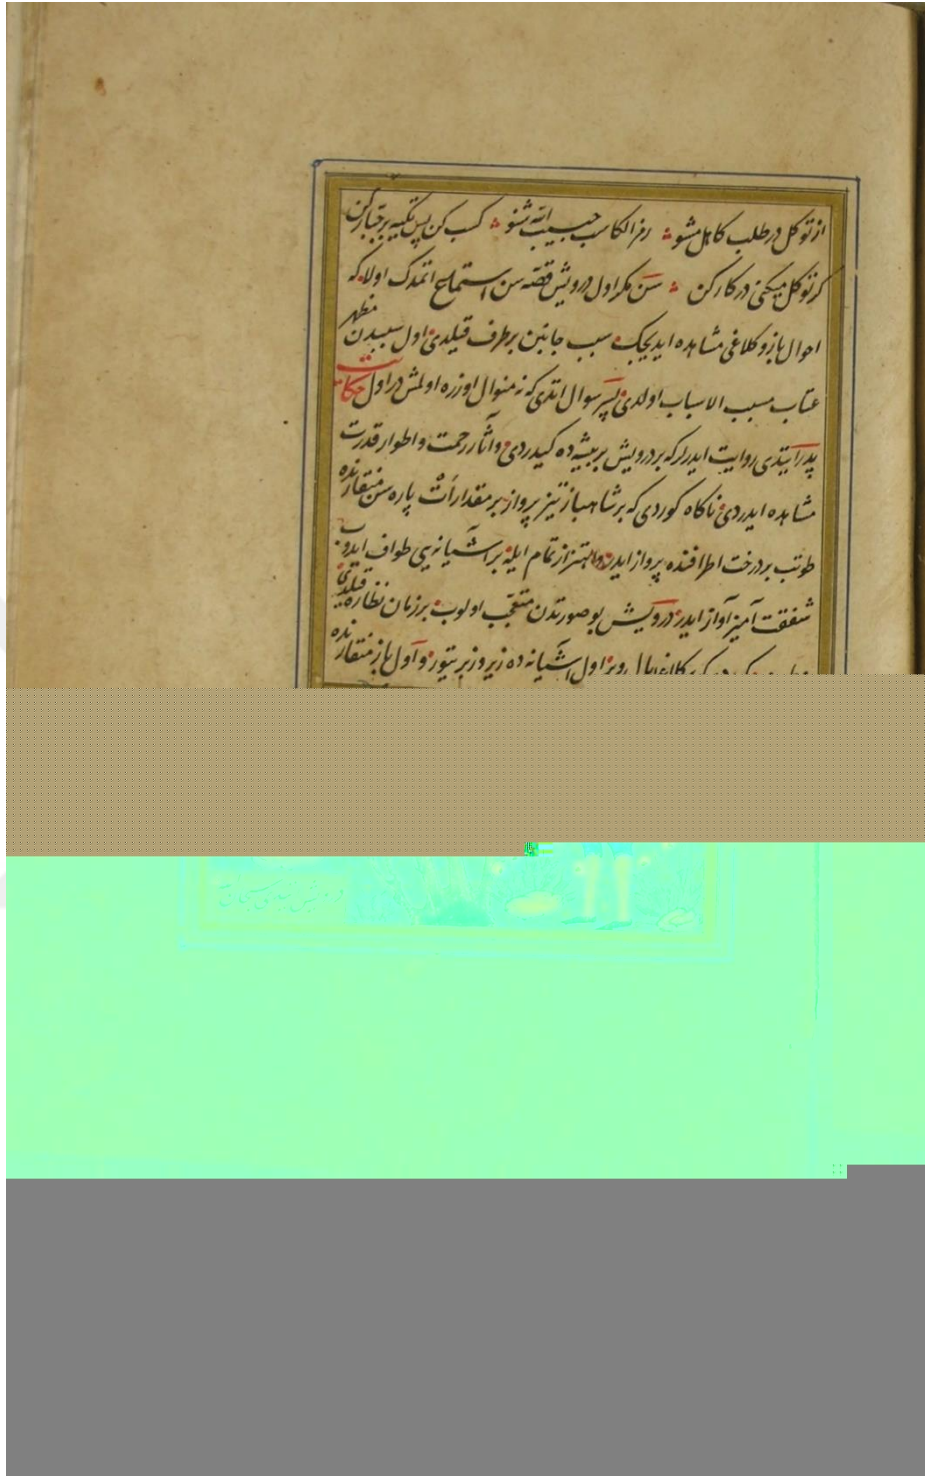 از توکل در طلب کاهل مشو ؞ رمز الکاسب حبیب الله شنو ؞ کسب کن پس تکیه بر جبار کن
کر توکل میکنی در کار کن ؞ سن مکر اول درویش قصه سن استماع اتمدک اولا که
احوال باز و کلاغی مشاهده ایدیجک سبب جانبن برطرف قیلدی اول سببدن مظهر
عتاب مسبب الاسباب اولدی پسر سوال اتدی که نه منوال اوزره اولمش در اول حکایت
پدر ایتدی روایت ایدرلر که بر درویش بر بیشه ده کیدردی و آثار رحمت و اطوار قدرت
مشاهده ایدردی ناکاه کوردی که بر شاهباز تیز پرواز بر مقدار ات پاره سن منقارنده
طوتب بر درخت اطرافنده پرواز ایدر و اهتزاز تمام ایله بر آشیانه یی طواف ایدوب
شفقت آمیز آواز ایدر درویش بو صورتدن متعجب اولوب بر زمان نظاره قیلدی
کلاغ اول آشیانه ده زیر و زبر یتور و اول باز منقارنده